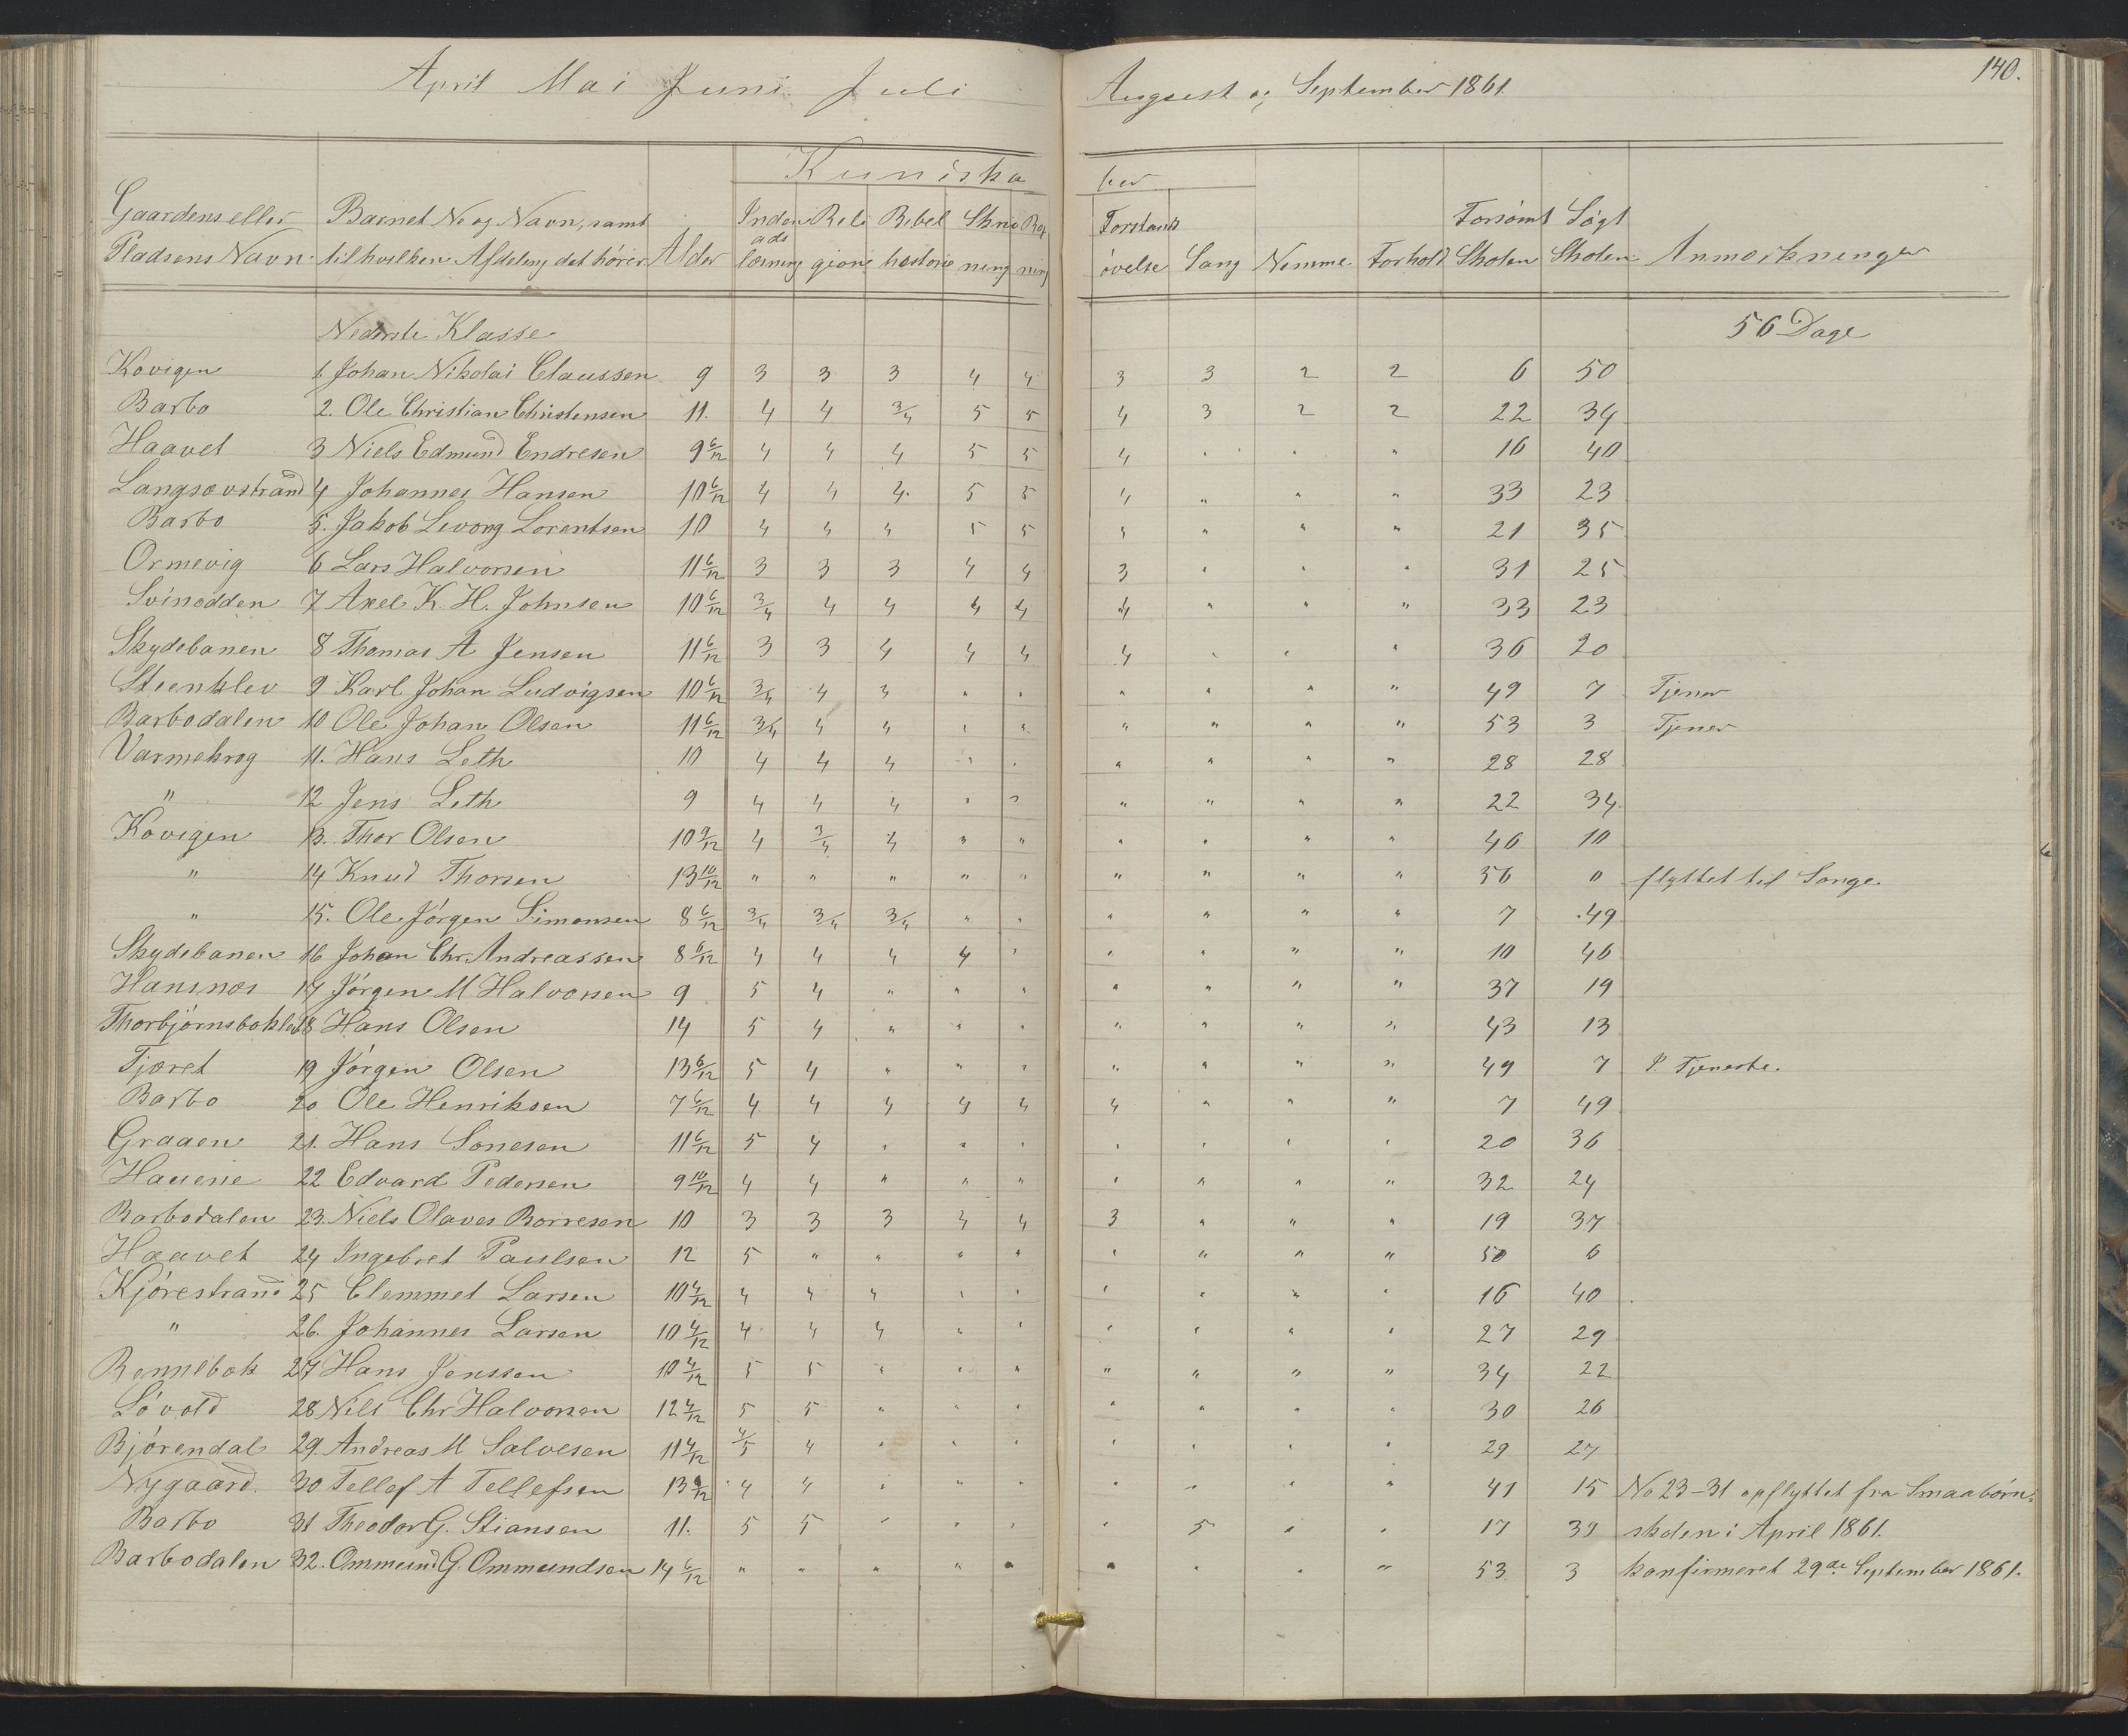 140.
April Mai Juni Juli August og September 1861.
Kundska ber
Gaardens eller Barnets No og Navn, samt Inden Reli Bibel Skriv Reg Forstands Forsømt Søgt
Pladsens Navn. til hvilken Afdeling det hører. Alder ads læsning gion historie ning ning øvelse Sang Nemme. Forhold Skolen Skolen. Anmærkninger
Nederste Klasse. 56 Dage
Kovigen 1. Johan Nikolai Claussen 9 3 3 3 4 4 3 3 2 2 6 50
Barbo 2. Ole Christian Christensen 11. 4 4 3/4 5 5 4 3 2 2 22 34
Haavet 3 Niels Edmund Endresen 9 6/12 4 4 4 5 5 4 " " " 16 40
Langsævstrand 4 Johannes Hansen 10 6/12 4 4 4. 5 5 4 " " " 33 23
Barbo 5. Jakob Levong Lorentsen 10 4 4 4 5 5 4 " " " 21 35
Ormevig 6 Lars Halvorsen 11 6/12 3 3 3 4 4 3 " " " 31 25
Svinodden 7 Axel K. H. Johnsen 10 6/12 3/4 4 4 4 4 4 " " " 33 23
Skydebanen 8 Thomas A Jensen 11 6/12 3 3 4 4 4 4 " " " 36 20
Steenklev 9 Karl Johan Ludvigsen 10 6/12 3/4 4 3 " " " " " " 49 7 Tjener
Barbodalen 10 Ole Johan Olsen 11 6/12 3/4 4 4 " " " " " " 53 3 Tjener
Varmekrog 11. Hans Leth 10 4 4 4 " " " " " " 28 28
" 12 Jens Leth 9 4 4 4 " " " " " " 22 34
Kovigen 13. Thor Olsen 10 9/12 4 3/4 4 " " " " " " 46 10
" 14 Knud Thorsen 13 10/12 " " " " " " " " " 56 0 flyttet til Songe
" 15. Ole Jørgen Simonsen 8 6/12 3/4 3/4 3/4 " " " " " " 7 49
Skydebanen 16 Johan Chr. Andreassen 8 6/12 4 4 4 4 " " " " " 10 46
Hansnæs 17 Jørgen M Halvorsen 9 5 4 " " " " " " " 37 19
18 Hans Olsen 14 5 4 " " " " " " " 43 13
Tjæret 19 Jørgen Olsen 13 6/12 5 4 " " " " " " " 49 7 I Tjeneste.
Barbo 20 Ole Henriksen 7 6/12 4 4 4 4 4 4 " " " 7 49
Graaen 21. Hans Sonesen 11 6/12 5 4 " " " " " " " 20 36
22 Edvard Pedersen 9 10/12 4 4 " " " " " " " 32 24
Barbodalen 23. Niels Olaves Borresen 10 3 3 3 4 4 3 " " " 19 37
Haavet 24 Ingebret Paulsen 12 5 " " " " " " " " 50 6
Kjørestrand 25 Clemmet Larsen 10 4/12 4 4 4 " " " " " " 16 40
" 26. Johannes Larsen 10 4/12 4 4 4 " " " " " " 27 29
27 Hans Jenssen 10 4/12 5 5 " " " " " " " 34 22
Løvold 28 Nils Chr Halvorsen 12 4/12 5 5 " " " " " " " 30 26
Bjørendal 29. Andreas M Salvesen 11 4/12 4/5 4 " " " " " " " 29 27
Nygaard. 30 Tellef A Tellefsen 13 4 4 " " " " " " " 41 15 No 23-31 opflyttet fra Smaabørn.
Barbo 31 Theodor G. Stiansen 11. 5 5 " " " " 5 " " 17 39 skolen i April 1861.
Barbodalen 32. Ommund G. Ommundsen 14 6/12 " " " " " " " " " 53 3 konfirmeret 29de September 1861.